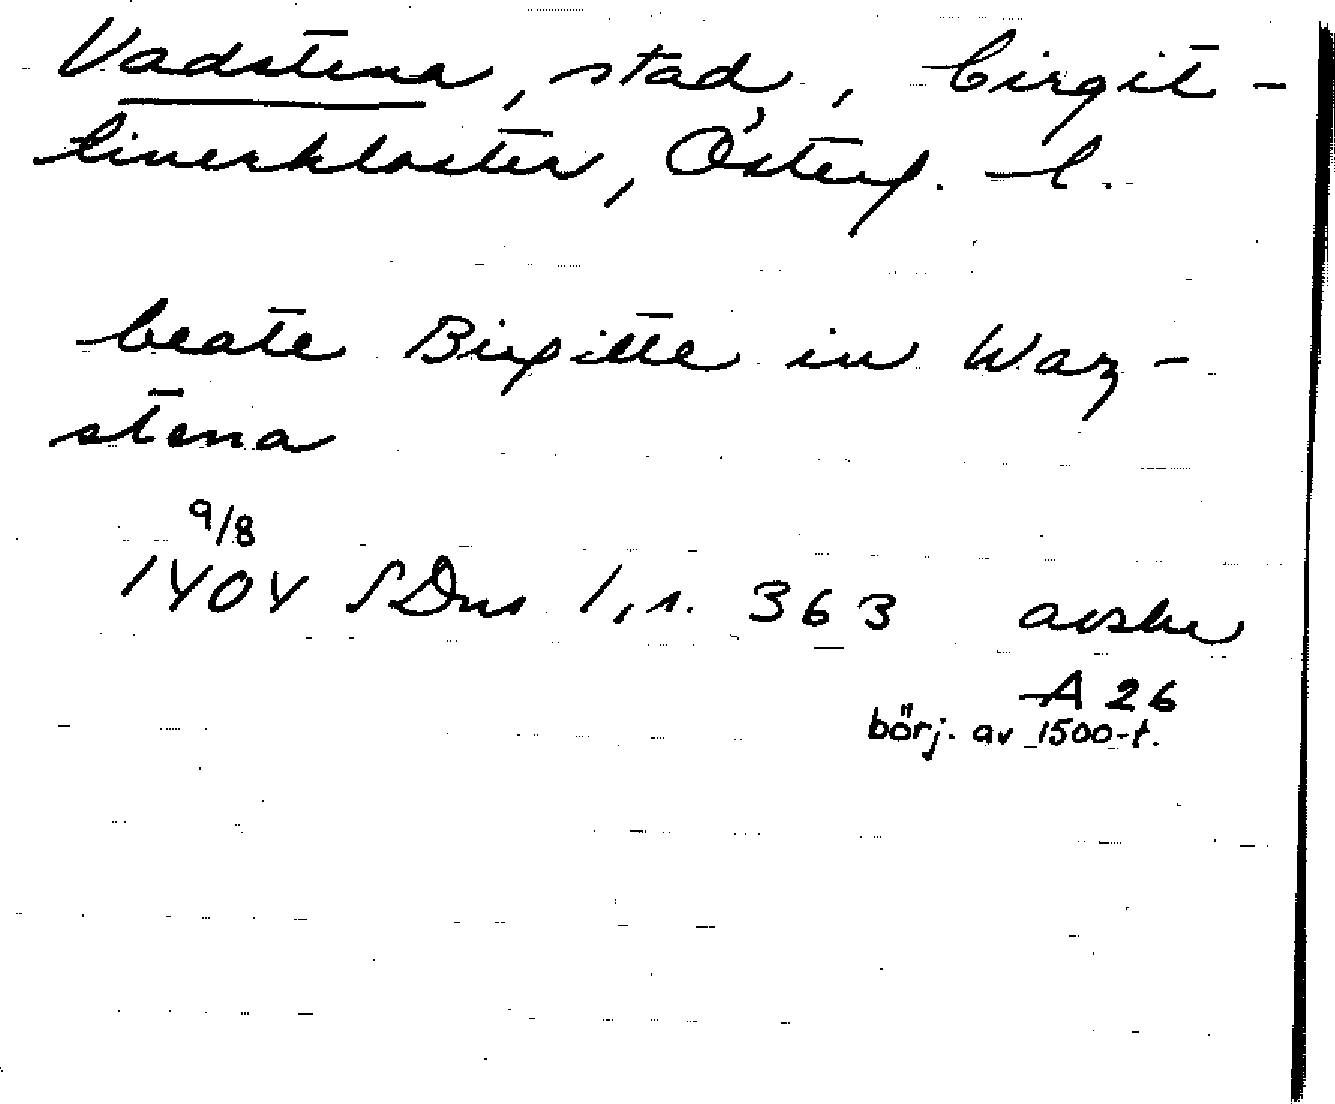 Vadstena, stad, birgit-
tinerkloster, Österg. l.
beate Birgitte in Waz-
stena
9/8
1404 SDns 1, s. 363 avskr
A 26
börj. av 1500-t.